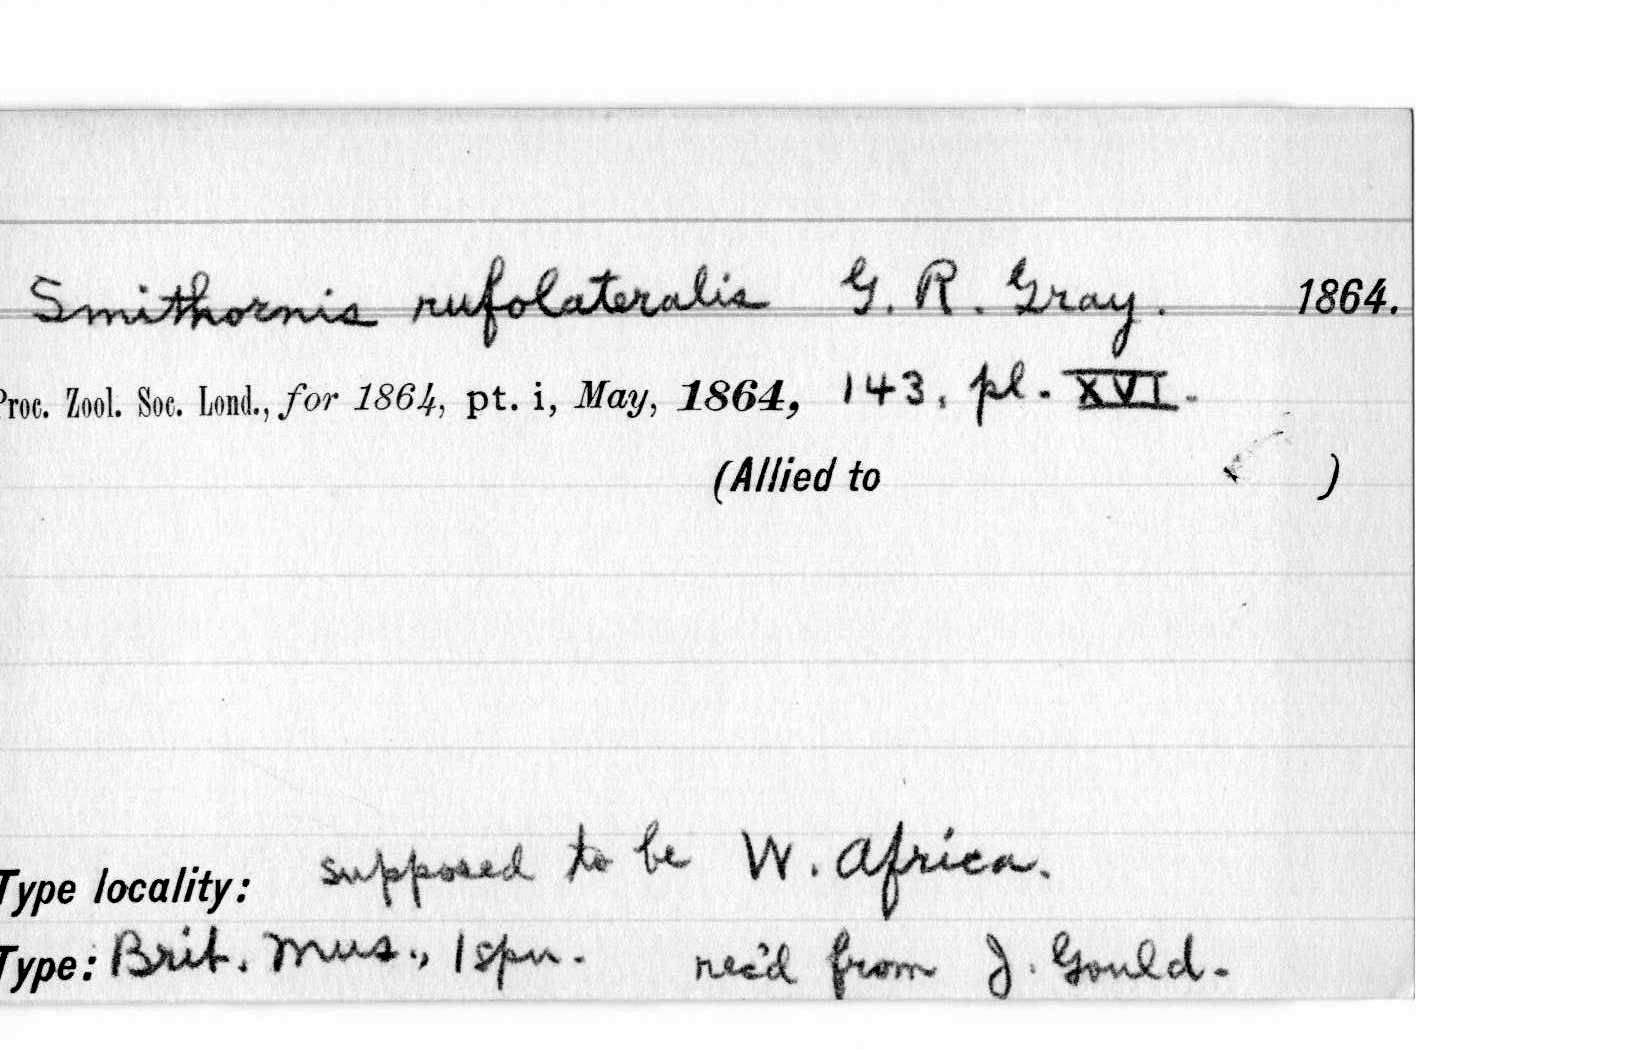 Smithornis rufolateralis G. R. Gray. 1864.
Proc. Zool. Soc. Lond., for 1864, pt. i, May, 1864, 143, pl. XVI.
(Allied to )
Type locality: supposed to be W. Africa.
Type: Brit. Mus., 1 spn. rec'd from J. Gould.